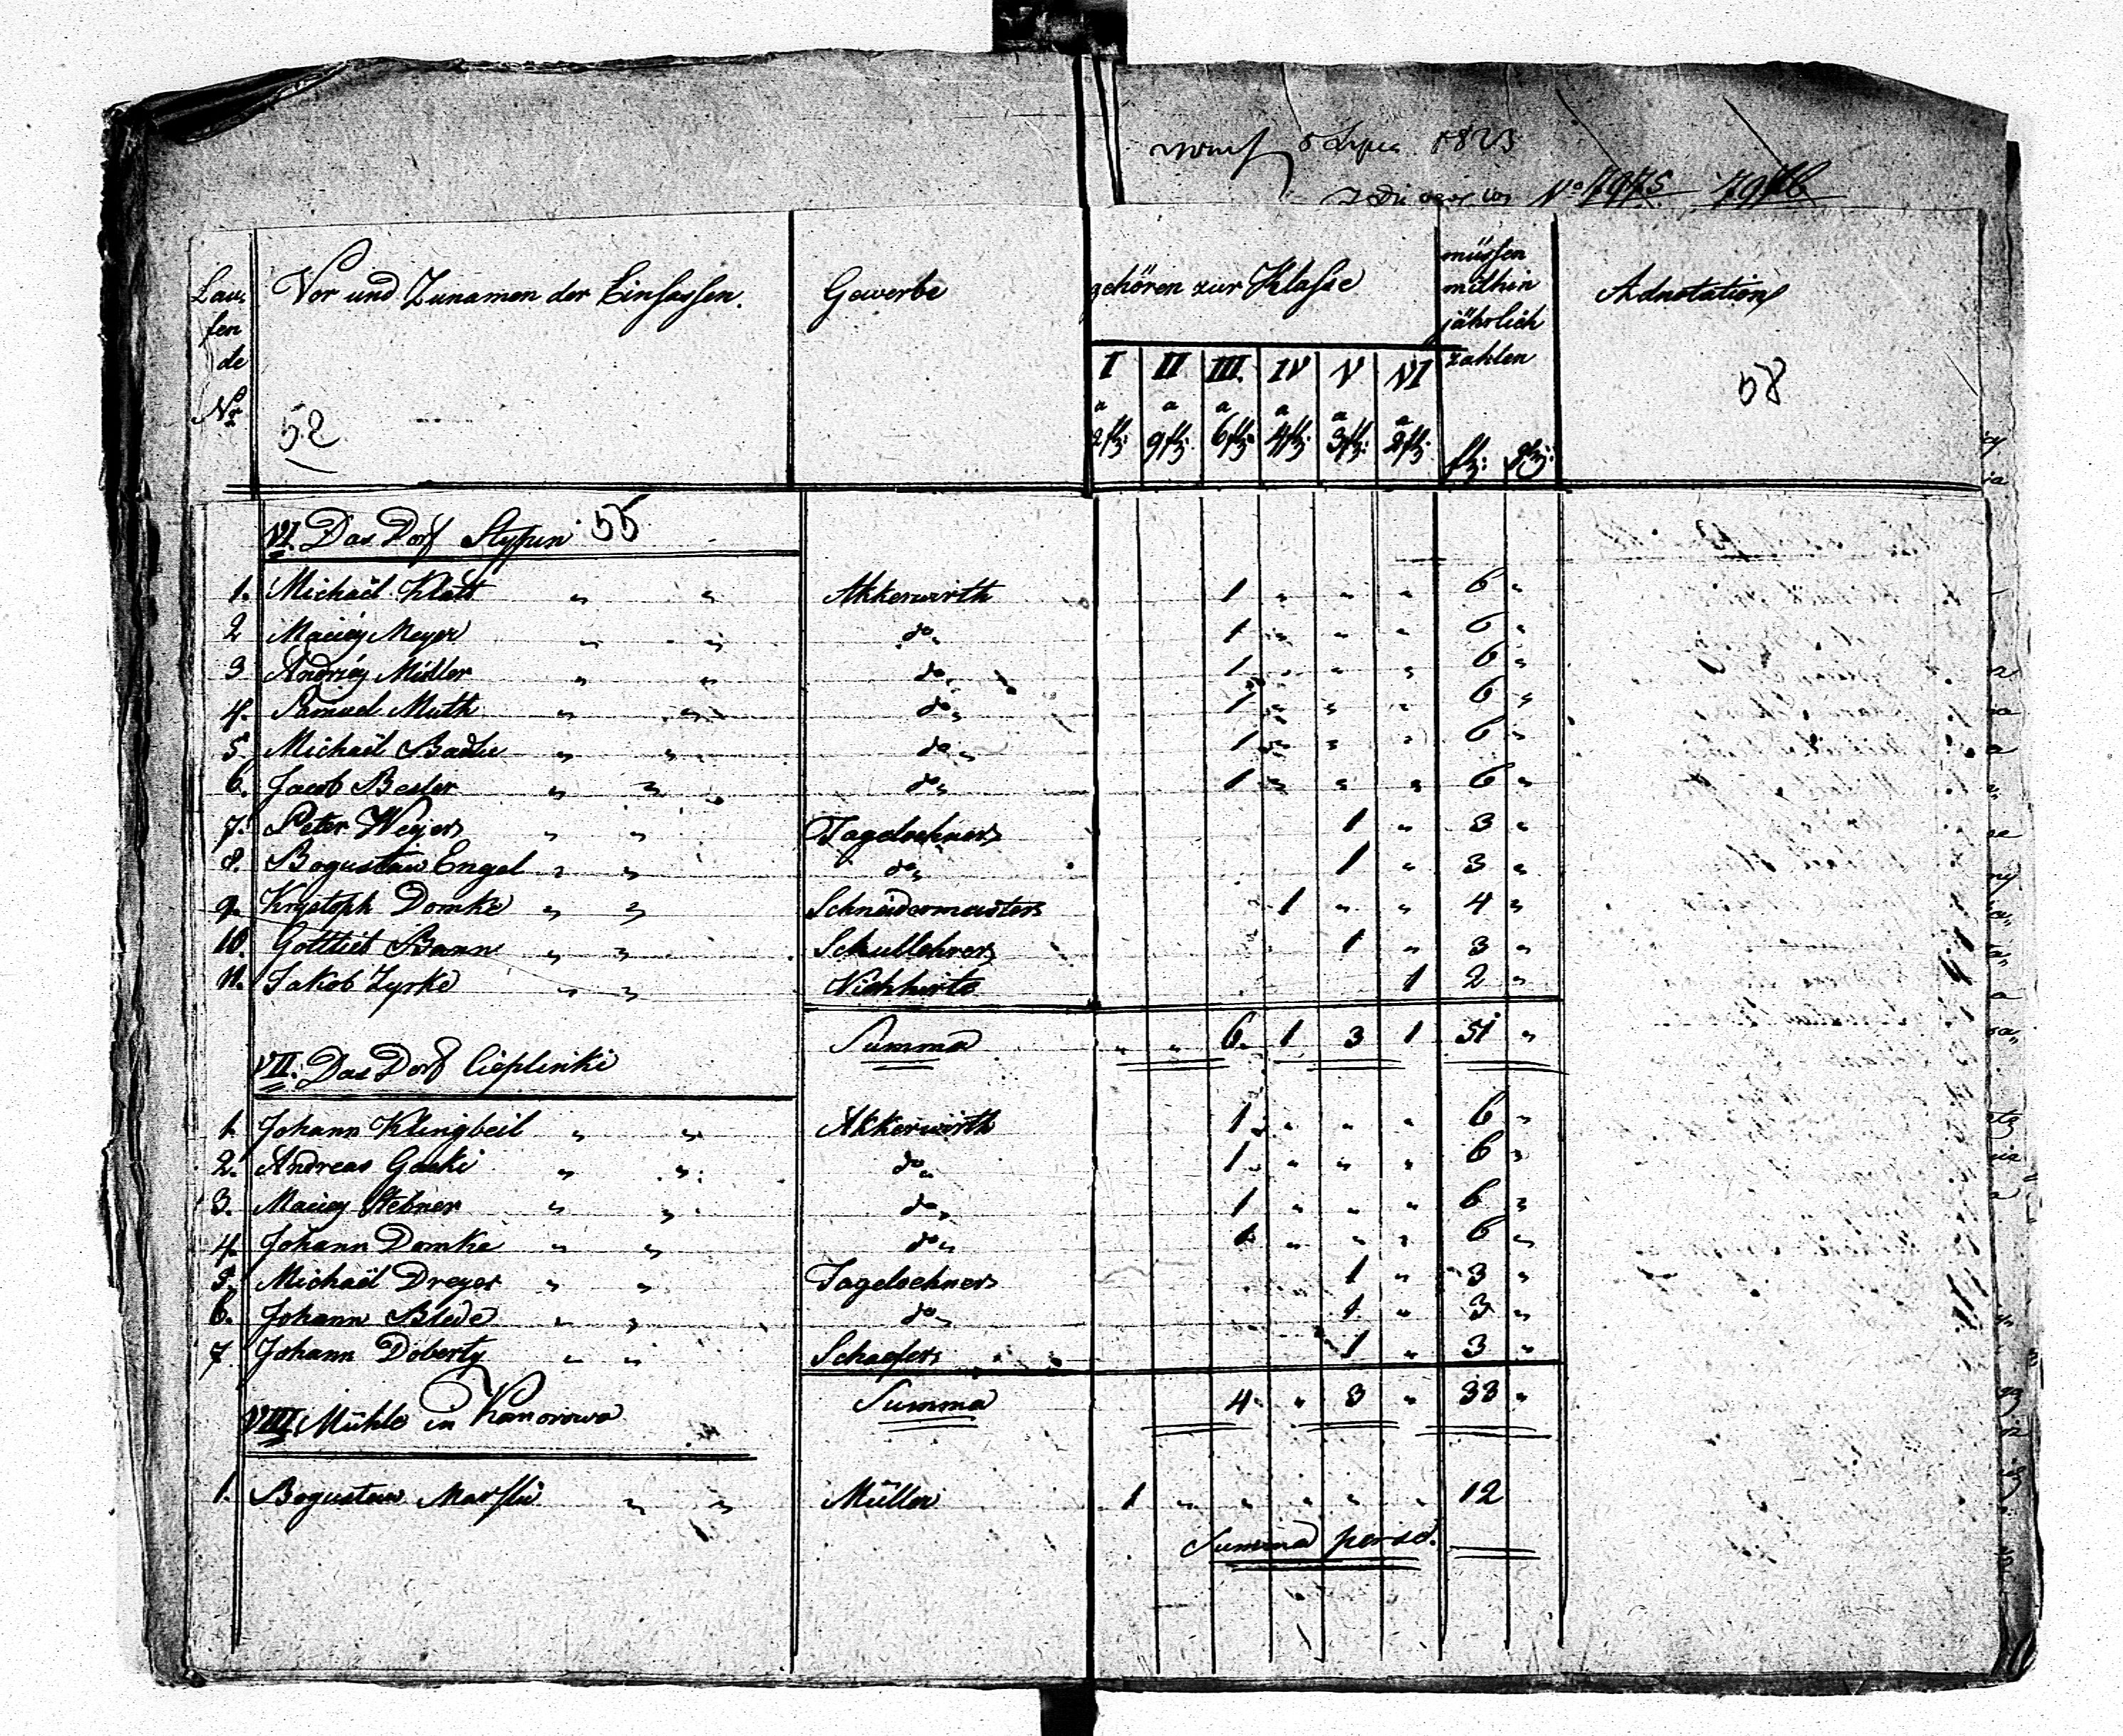 5 Lipca 1823
No 7975 7976
Lau, Vor und Zunamen der Einsassen. Gewerbe gehören zur Klasse müssen Adnotation
fen mithin
de jährlich
No I II III. IV V VI zahlen
a a a a a a
52 58
2 fl: 9 fl: 6 fl: 4 fl: 3 fl: 2 fl: fl: gl:
VI. Das Dorf Stypin 55
1. Michaël Klatt " " Akkerwirth 1 " " " 6 "
2 Maciey Meyer " " do " 1 " " " 6 "
3 Andriey Müller " " do " 1 " " " 6 "
4. Samuel Muth " " do " 1 " " " 6 "
5 Michaël " " do " 1 " " " 6 "
6. Jacob Besler " " do " 1 " " " 6 "
7. Peter Weyer " " Tageloehner 1 " 3 "
8. Bogusław Engel " " do " 1 " 3 "
9. Krystoph Domke " " Schneidermeister 1 " " 4 "
10. Gottlieb Bann " " Schullehrer 1 " 3 "
11. Jakob Zyrke " " Viehhirte 1 2 "
Summa " " 6. 1 3 1 51 "
VII. Das Dorf Cieplinki
1. Johann Klingbeil " " Akkerwirth 1 " " " 6 "
2. Andreas " " do " 1 " " " 6 "
3. Maciey Stebner " " do " 1 " " " 6 "
4. Johann Domke " " do " 1 " " " 6 "
5. Michaël Dreyer " " Tageloehner 1 " 3 "
6. Johann Blede " " do " 1 " 3 "
7 Johann Doberty " " Schaefer 1 " 3 "
Summa 4 " 3 " 33 "
VIII. Mühle in Komorowo
1. Bogusław " " Müller 1 " " " " " 12
Summa per se.